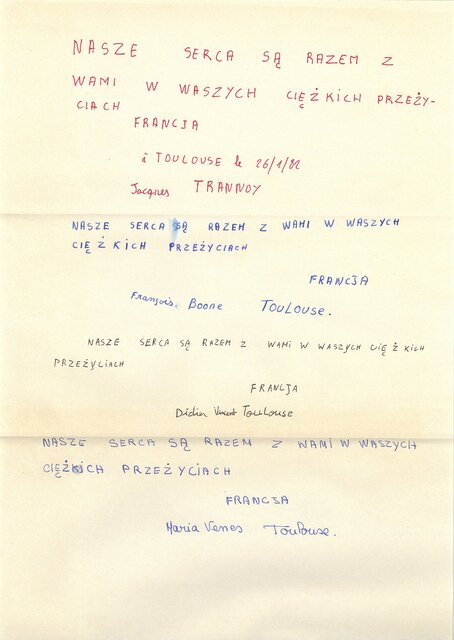 NASZE SERCA SĄ RAZEM Z
WAMI W WASZYCH CIĘŻKICH PRZEŻY-
CIACH
FRANCJA
à TOULOUSE le 26/1/82
Jacques TRANNOY
NASZE SERCA SĄ RAZEM Z WAMI W WASZYCH
CIĘŻKICH PRZEŻYCIACH
FRANCJA
François. Boone TOULOUSE.
NASZE SERCA SĄ RAZEM Z WAMI W WASZYCH CIĘŻKICH
PRZEŻYCIACH
FRANCJA
Didier Vincent Toulouse
NASZE SERCA SĄ RAZEM Z WAMI W WASZYCH
CIĘŻKICH PRZEŻYCIACH
FRANCJA
Maria Venes Toulouse.